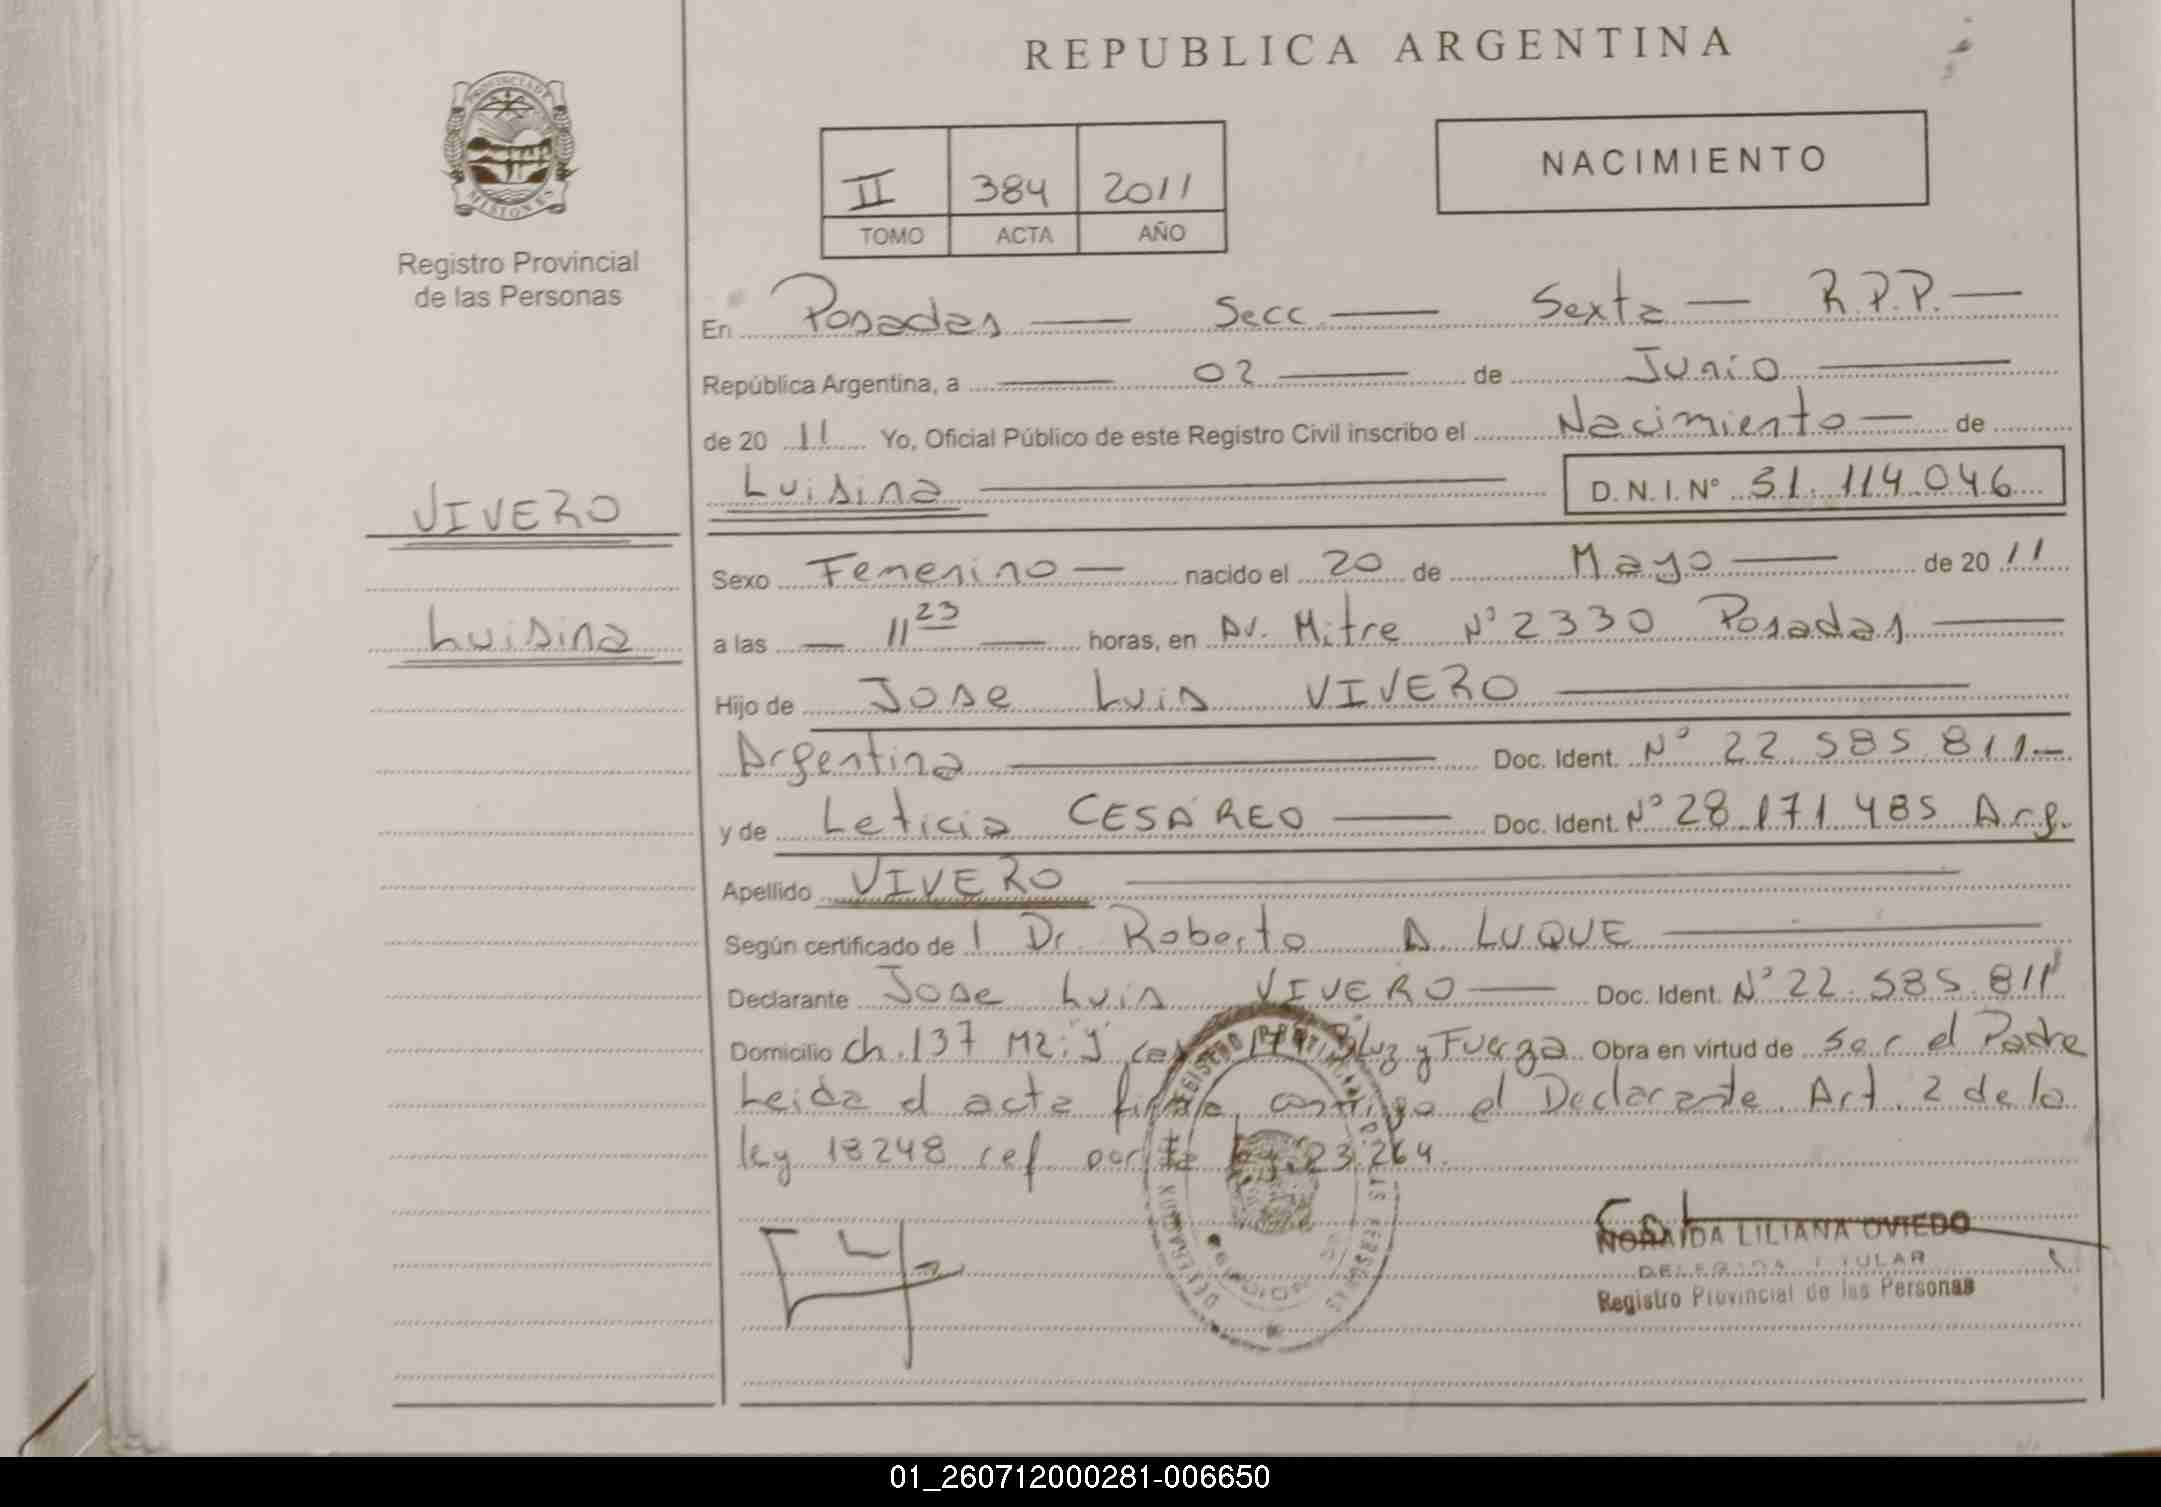 REPUBLICA ARGENTINA
PROVINCIA DE
MISIONES
Registro Provincial
de las Personas
II 384 2011
TOMO ACTA AÑO
NACIMIENTO
En Posadas — Secc — Sexta — R.P.P. —
República Argentina, a — 02 — de Junio —
de 20 11 Yo, Oficial Público de este Registro Civil inscribo el Nacimiento — de
VIVERO
Luisina
Luisina — D.N.I. Nº 51.114.046
Sexo Femenino — nacido el 20 de Mayo — de 20 11
a las — 11 23 — horas, en Av. Mitre Nº 2330 Posadas —
Hijo de Jose Luis VIVERO —
Argentina — Doc. Ident. Nº 22.585.811 —
y de Leticia CESAREO — Doc. Ident. Nº 28.171.485 Arg.
Apellido VIVERO —
Según certificado de l Dr. Roberto A LUQUE —
Declarante Jose Luis VIVERO — Doc. Ident. Nº 22.585.811
Domicilio ch. 137 Mz: J Luz y Fuerza Obra en virtud de ser el Padre
Leida el acta firma conmigo el Declarante. Art. 2 de la
ley 18248 ref por la ley 23.264.
NORAIDA LILIANA OVIEDO
DELEGADA TITULAR
Registro Provincial de las Personas
01_260712000281-006650